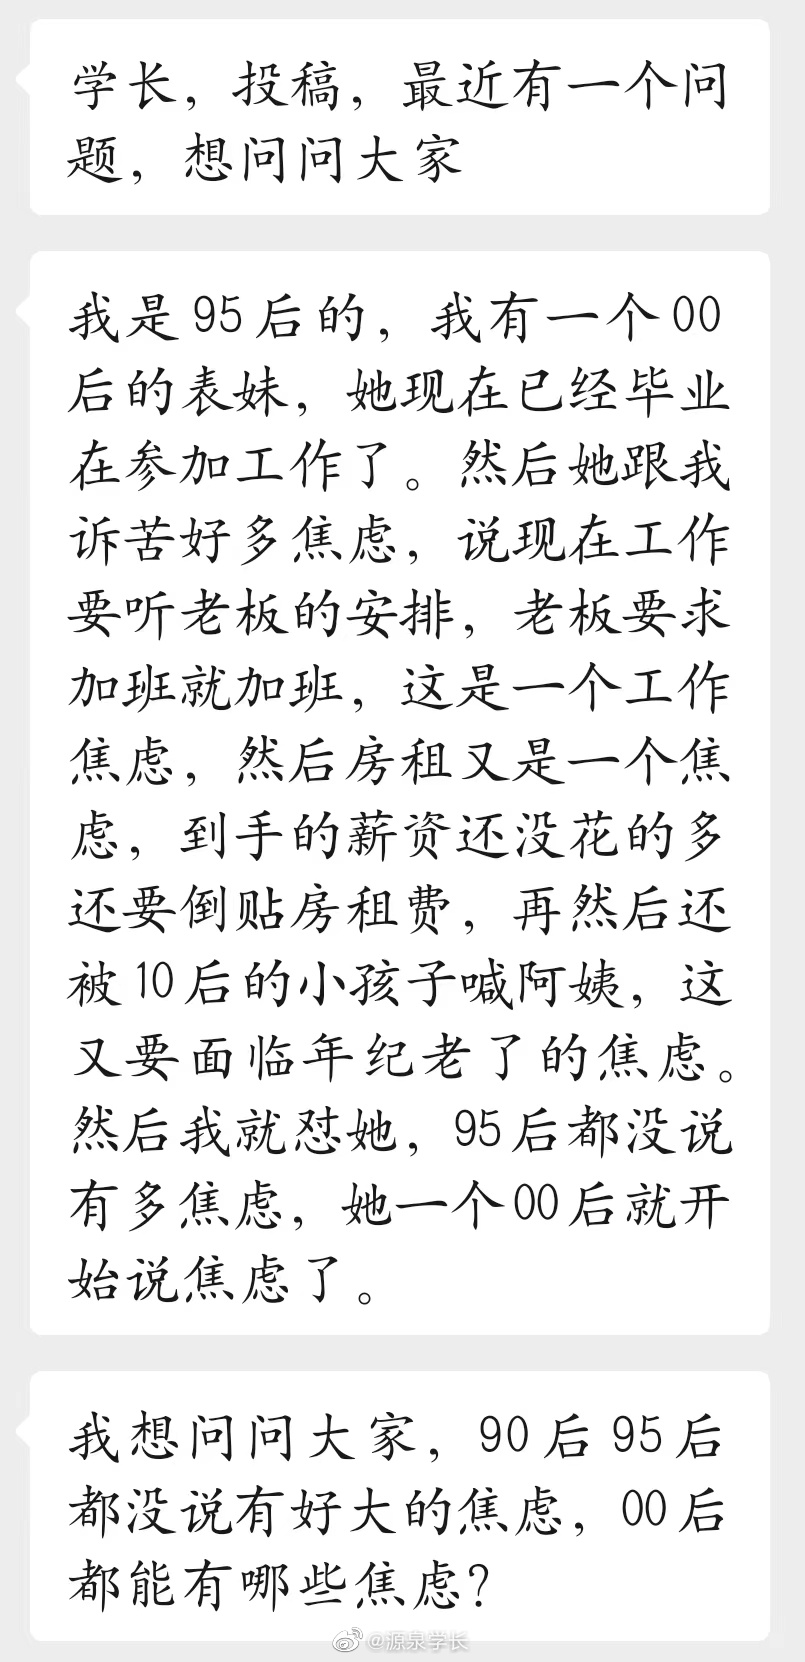 学长，投稿，最近有一个问
题，想问问大家
我是95后的，我有一个00
后的表妹，她现在已经毕业
在参加工作了。然后她跟我
诉苦好多焦虑，说现在工作
要听老板的安排，老板要求
加班就加班，这是一个工作
焦虑，然后房租又是一个焦
虑，到手的薪资还没花的多
还要倒贴房租费，再然后还
被10后的小孩子喊阿姨，这
又要面临年纪老了的焦虑。
然后我就怼她，95后都没说
有多焦虑，她一个00后就开
始说焦虑了。
我想问问大家，90后95后
都没说有好大的焦虑，00后
都能有哪些焦虑？
@源泉学长